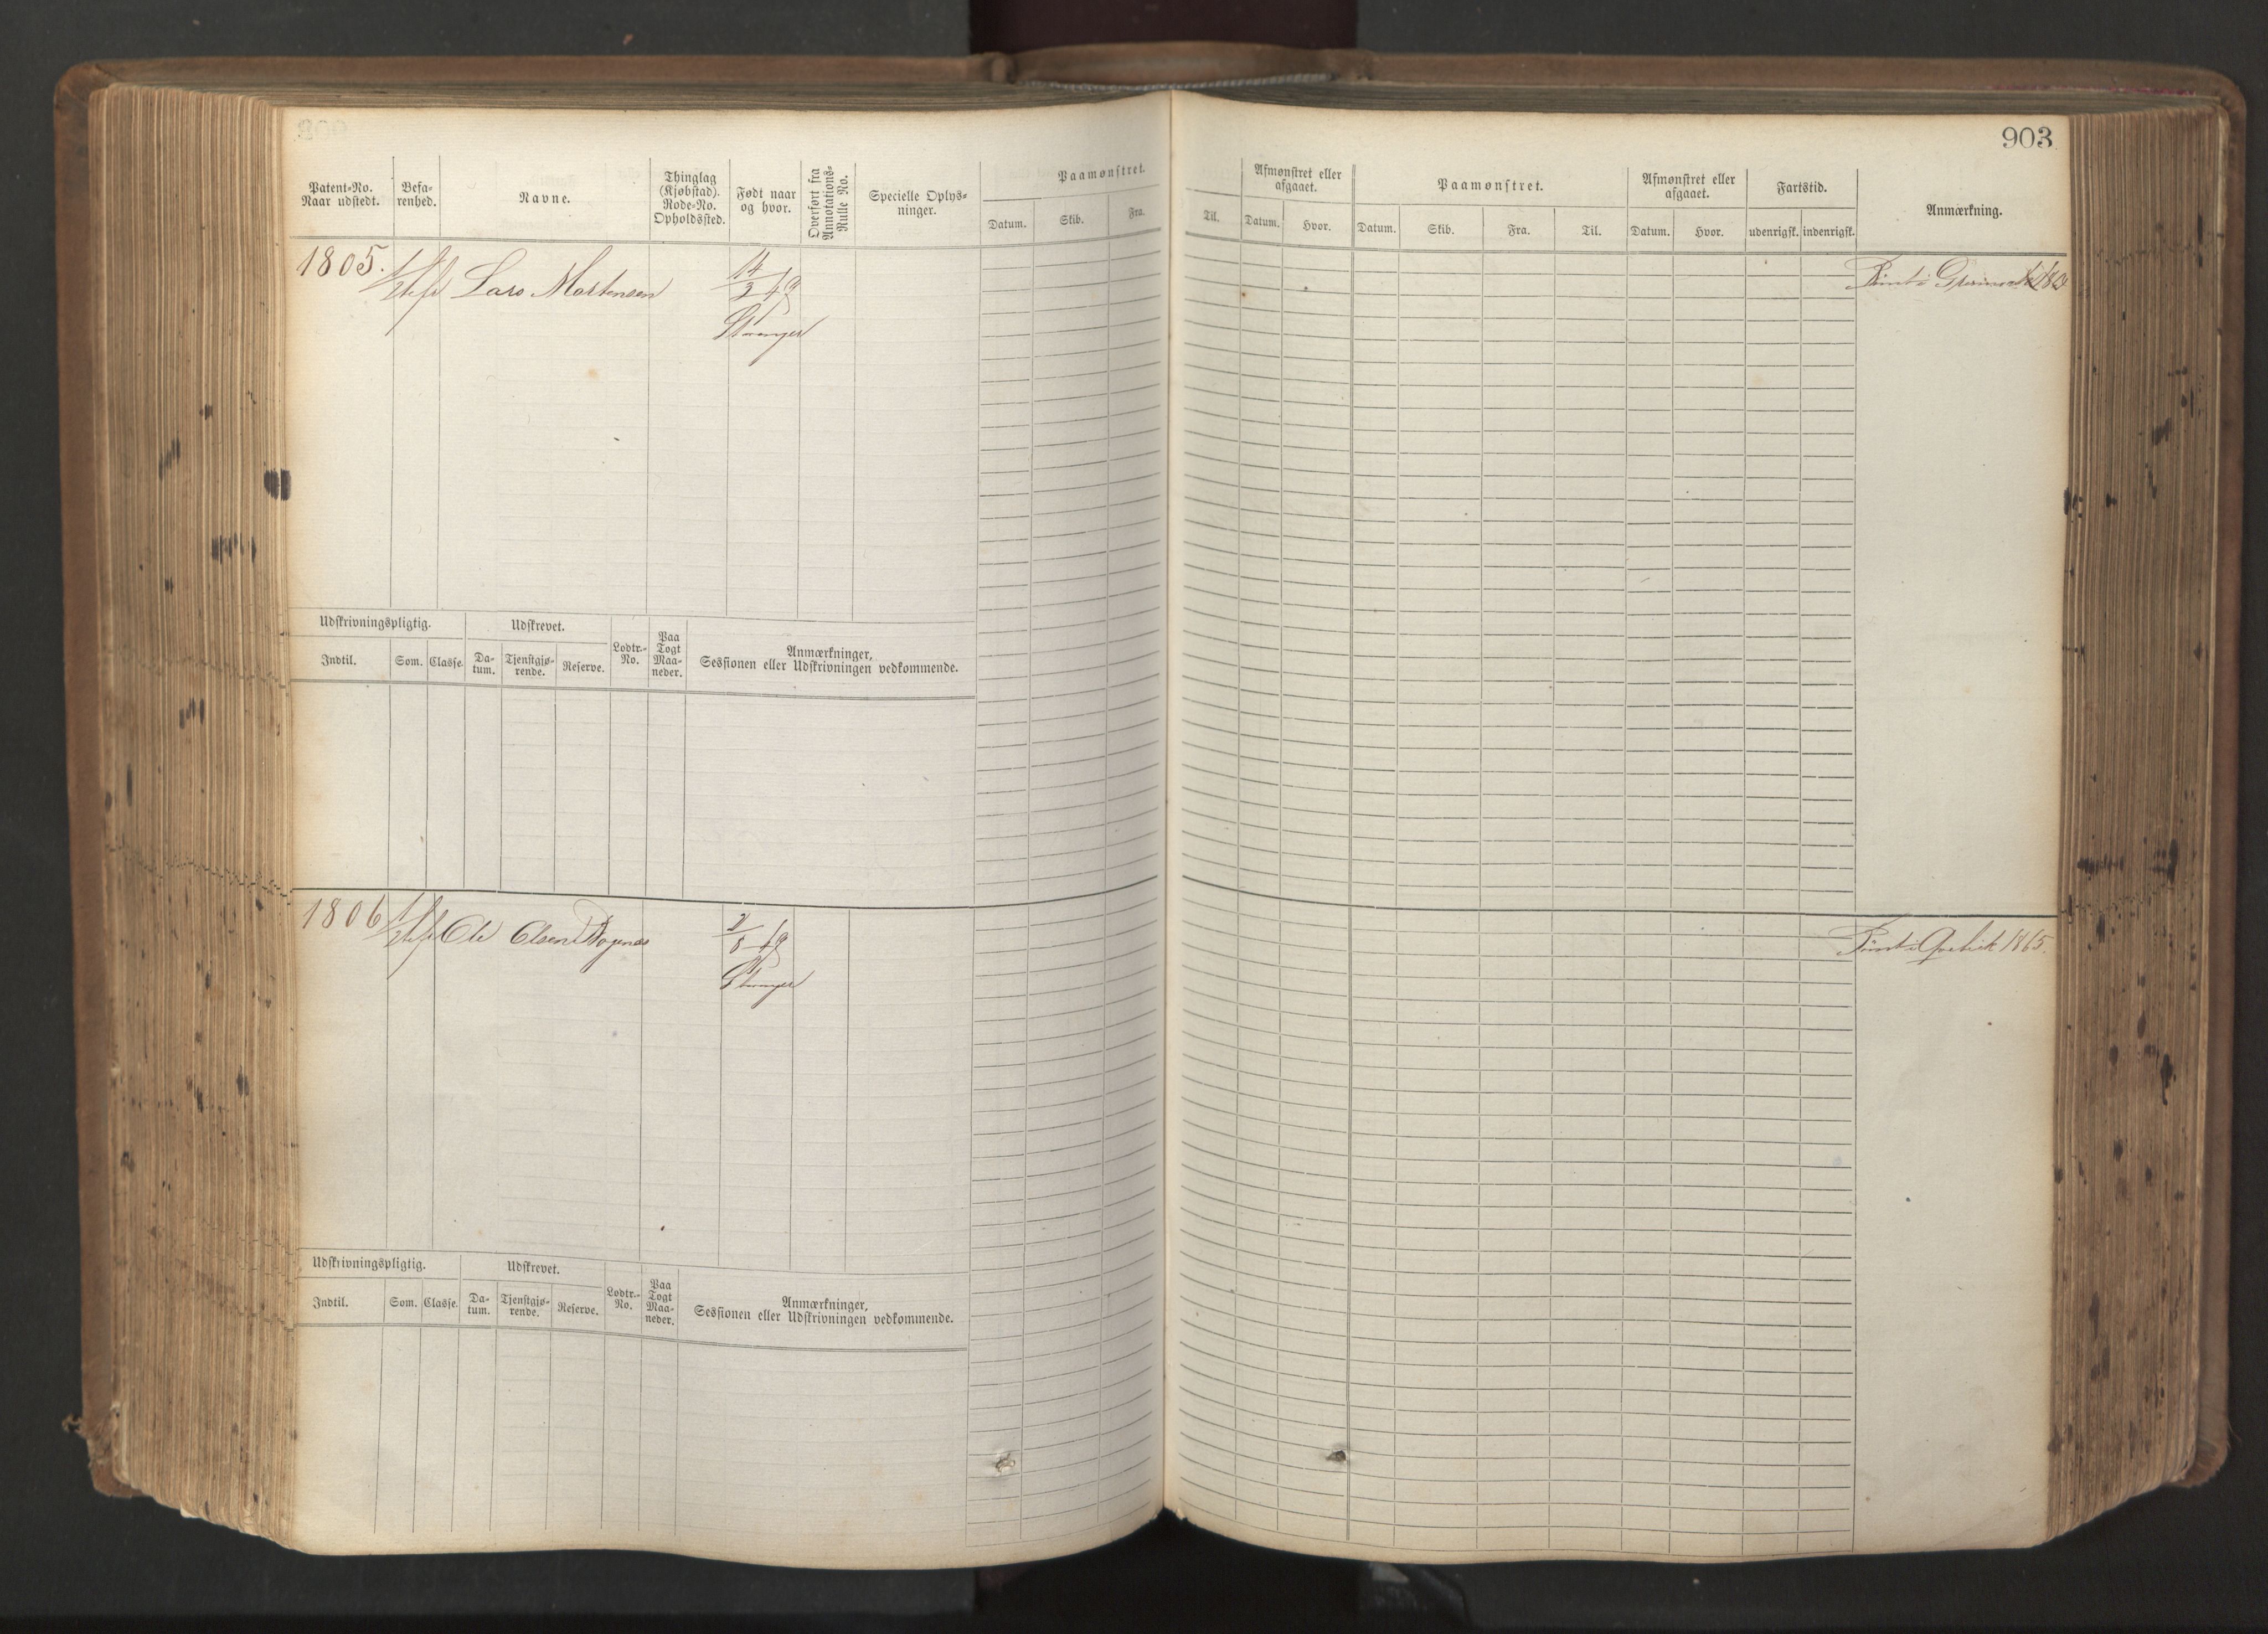 903
Patent-No.
Naar udstedt.
Befa-
renhed.
Navne.
Thinglag
(Kjøbstad).
Rode-No.
Opholdssted.
Født naar
og hvor.
Overført fra
Annotations-
Rulle No.
Specielle Oplys-
ninger.
Paamønstret.
Datum.
Skib.
Fra.
Til.
Afmønstret eller
afgaaet.
Datum.
Hvor.
Paamønstret.
Datum.
Skib.
Fra.
Til.
Afmønstret eller
afgaaet.
Datum.
Hvor.
Fartstid.
udenrigsk.
indenrigsk.
Anmærkning.
1805.
Lars Mortensen
14/3 49
Stavanger
Rømt i
Udskrivningspligtig.
Udskrevet.
Indtil.
Som.
Classe.
Da-
tum.
Tjenstgjø-
rende.
Reserve.
Lodtr.-
No.
Paa
Togt
Maa-
neder.
Anmærkninger,
Sessionen eller Udskrivningen vedkommende.
1806
Ole Olsen
49
Stavanger
Rømt i Qvebek 1865.
Udskrivningspligtig.
Udskrevet.
Indtil.
Som.
Classe.
Da-
tum.
Tjenstgjø-
rende.
Reserve.
Lodtr.-
No.
Paa
Togt
Maa-
neder.
Anmærkninger,
Sessionen eller Udskrivningen vedkommende.